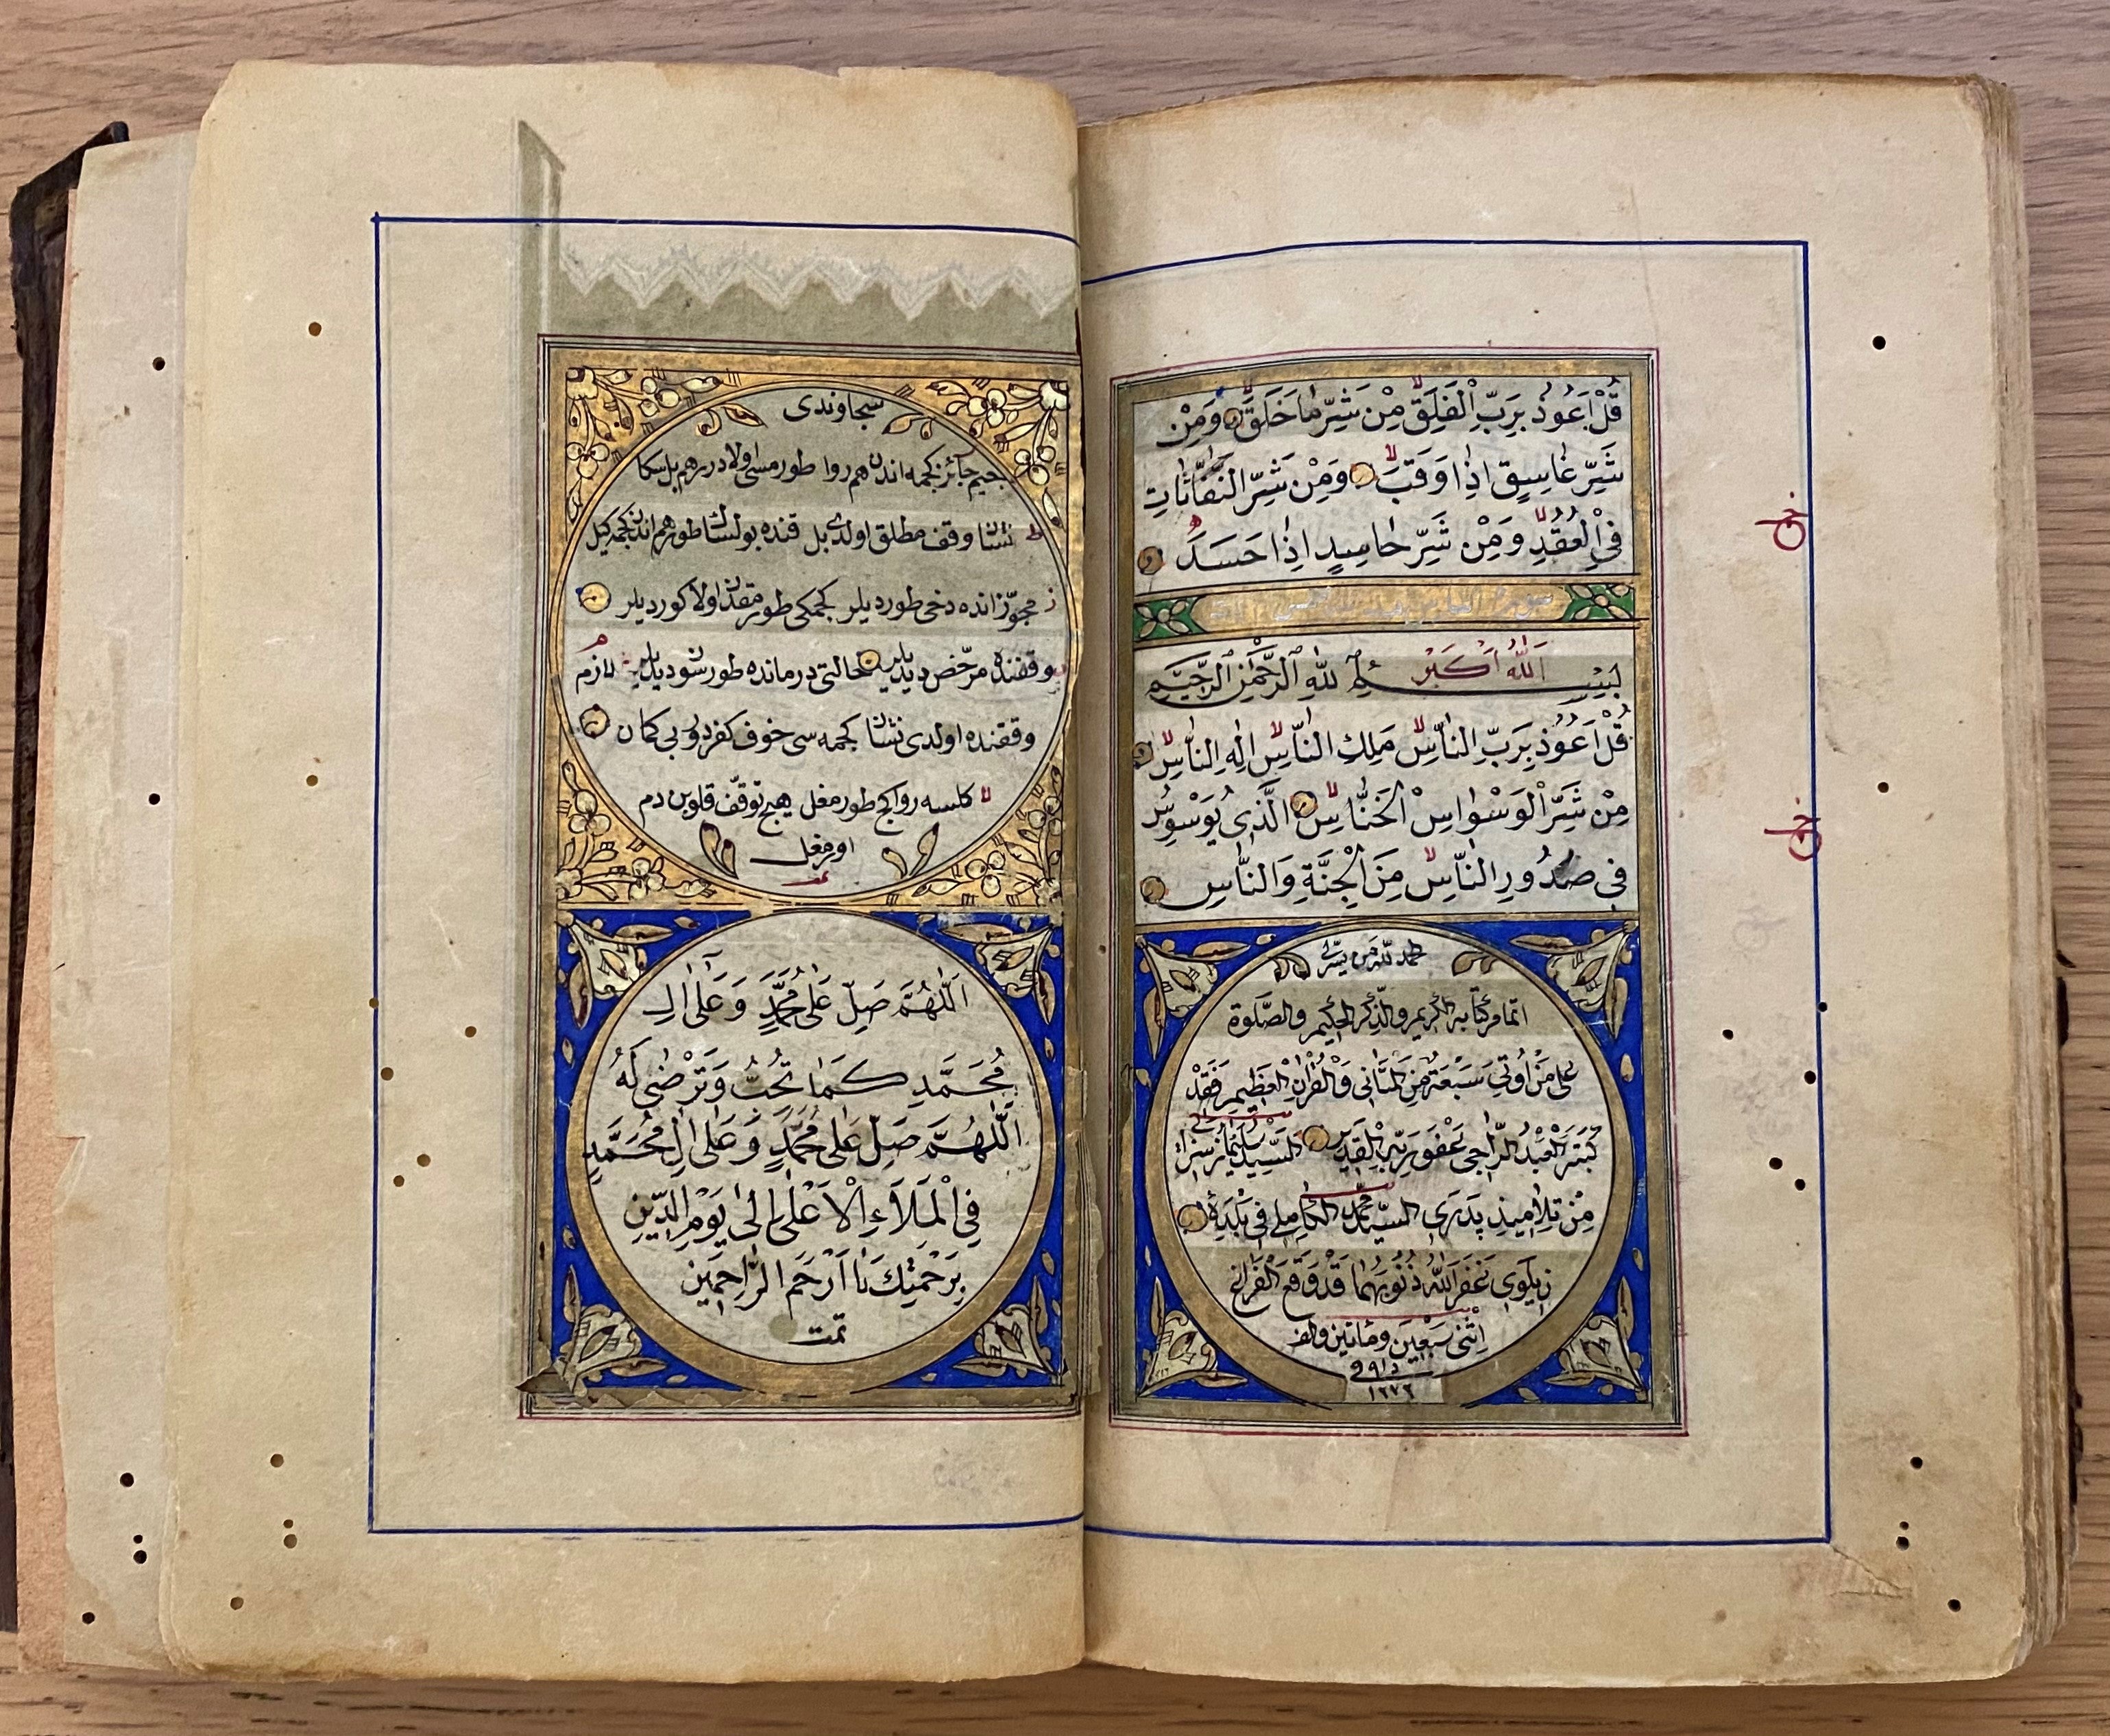 قُلْ اَعُوذُ بِرَبِّ الْفَلَقِ مِنْ شَرِّ مَا خَلَقَ وَمِنْ
شَرِّ غَاسِقٍ اِذَا وَقَبَ وَمِنْ شَرِّ النَّفَّاثَاتِ
فِي الْعُقَدِ وَمِنْ شَرِّ حَاسِدٍ اِذَا حَسَدَ
اَللّٰهُ اَكْبَرْ
بِسْمِ اللّٰهِ الرَّحْمٰنِ الرَّحِيمِ
قُلْ اَعُوذُ بِرَبِّ النَّاسِ مَلِكِ النَّاسِ اِلٰهِ النَّاسِ
مِنْ شَرِّ الْوَسْوَاسِ الْخَنَّاسِ الَّذِي يُوَسْوِسُ
فِي صُدُورِ النَّاسِ مِنَ الْجِنَّةِ وَالنَّاسِ
حمد لله من يسرلي
اتمام كتابه الكريم والذكر الحكيم والصلوة
على من اوتي سبعة من المثاني والقران العظيم فقد
كتبه العبد الراجي عفو ربه القدير السيد سليمان
من تلاميذ پدرى السيد محمد الكاملى فى بلدة
غفر الله ذنوبهما قد وقع الفراغ
اثنى سبعين ومائتين والف
١٢٧٢
سجاوندى
جيم جائز كچمه اندن هم روا طورمسى اولادر
ط نشان وقف مطلق اولدى بل قنده بولسك طور هم اندن كچمه كيل
ز مجوز انده دخى طورديلر كچمكى طورمقدن اولا كورديلر
وقفنده مرخص ديديلر حالتى درمانده طورسون ديديلر م لازم
وقفنده اولدى نشان كچمه سى خوف كفردر بى كمان
لا كلسه روا كچ طورمغل هيچ توقف قلوبن دم
اورمغل
اَللّٰهُمَّ صَلِّ عَلٰى مُحَمَّدٍ وَعَلٰى اٰلِ
مُحَمَّدٍ كَمَا تُحِبُّ وَتَرْضٰى لَهُ
اَللّٰهُمَّ صَلِّ عَلٰى مُحَمَّدٍ وَعَلٰى اٰلِ مُحَمَّدٍ
فِي الْمَلَاَءِ الْاَعْلٰى اِلٰى يَوْمِ الدِّينِ
بِرَحْمَتِكَ يَا اَرْحَمَ الرَّاحِمِينَ
تمت